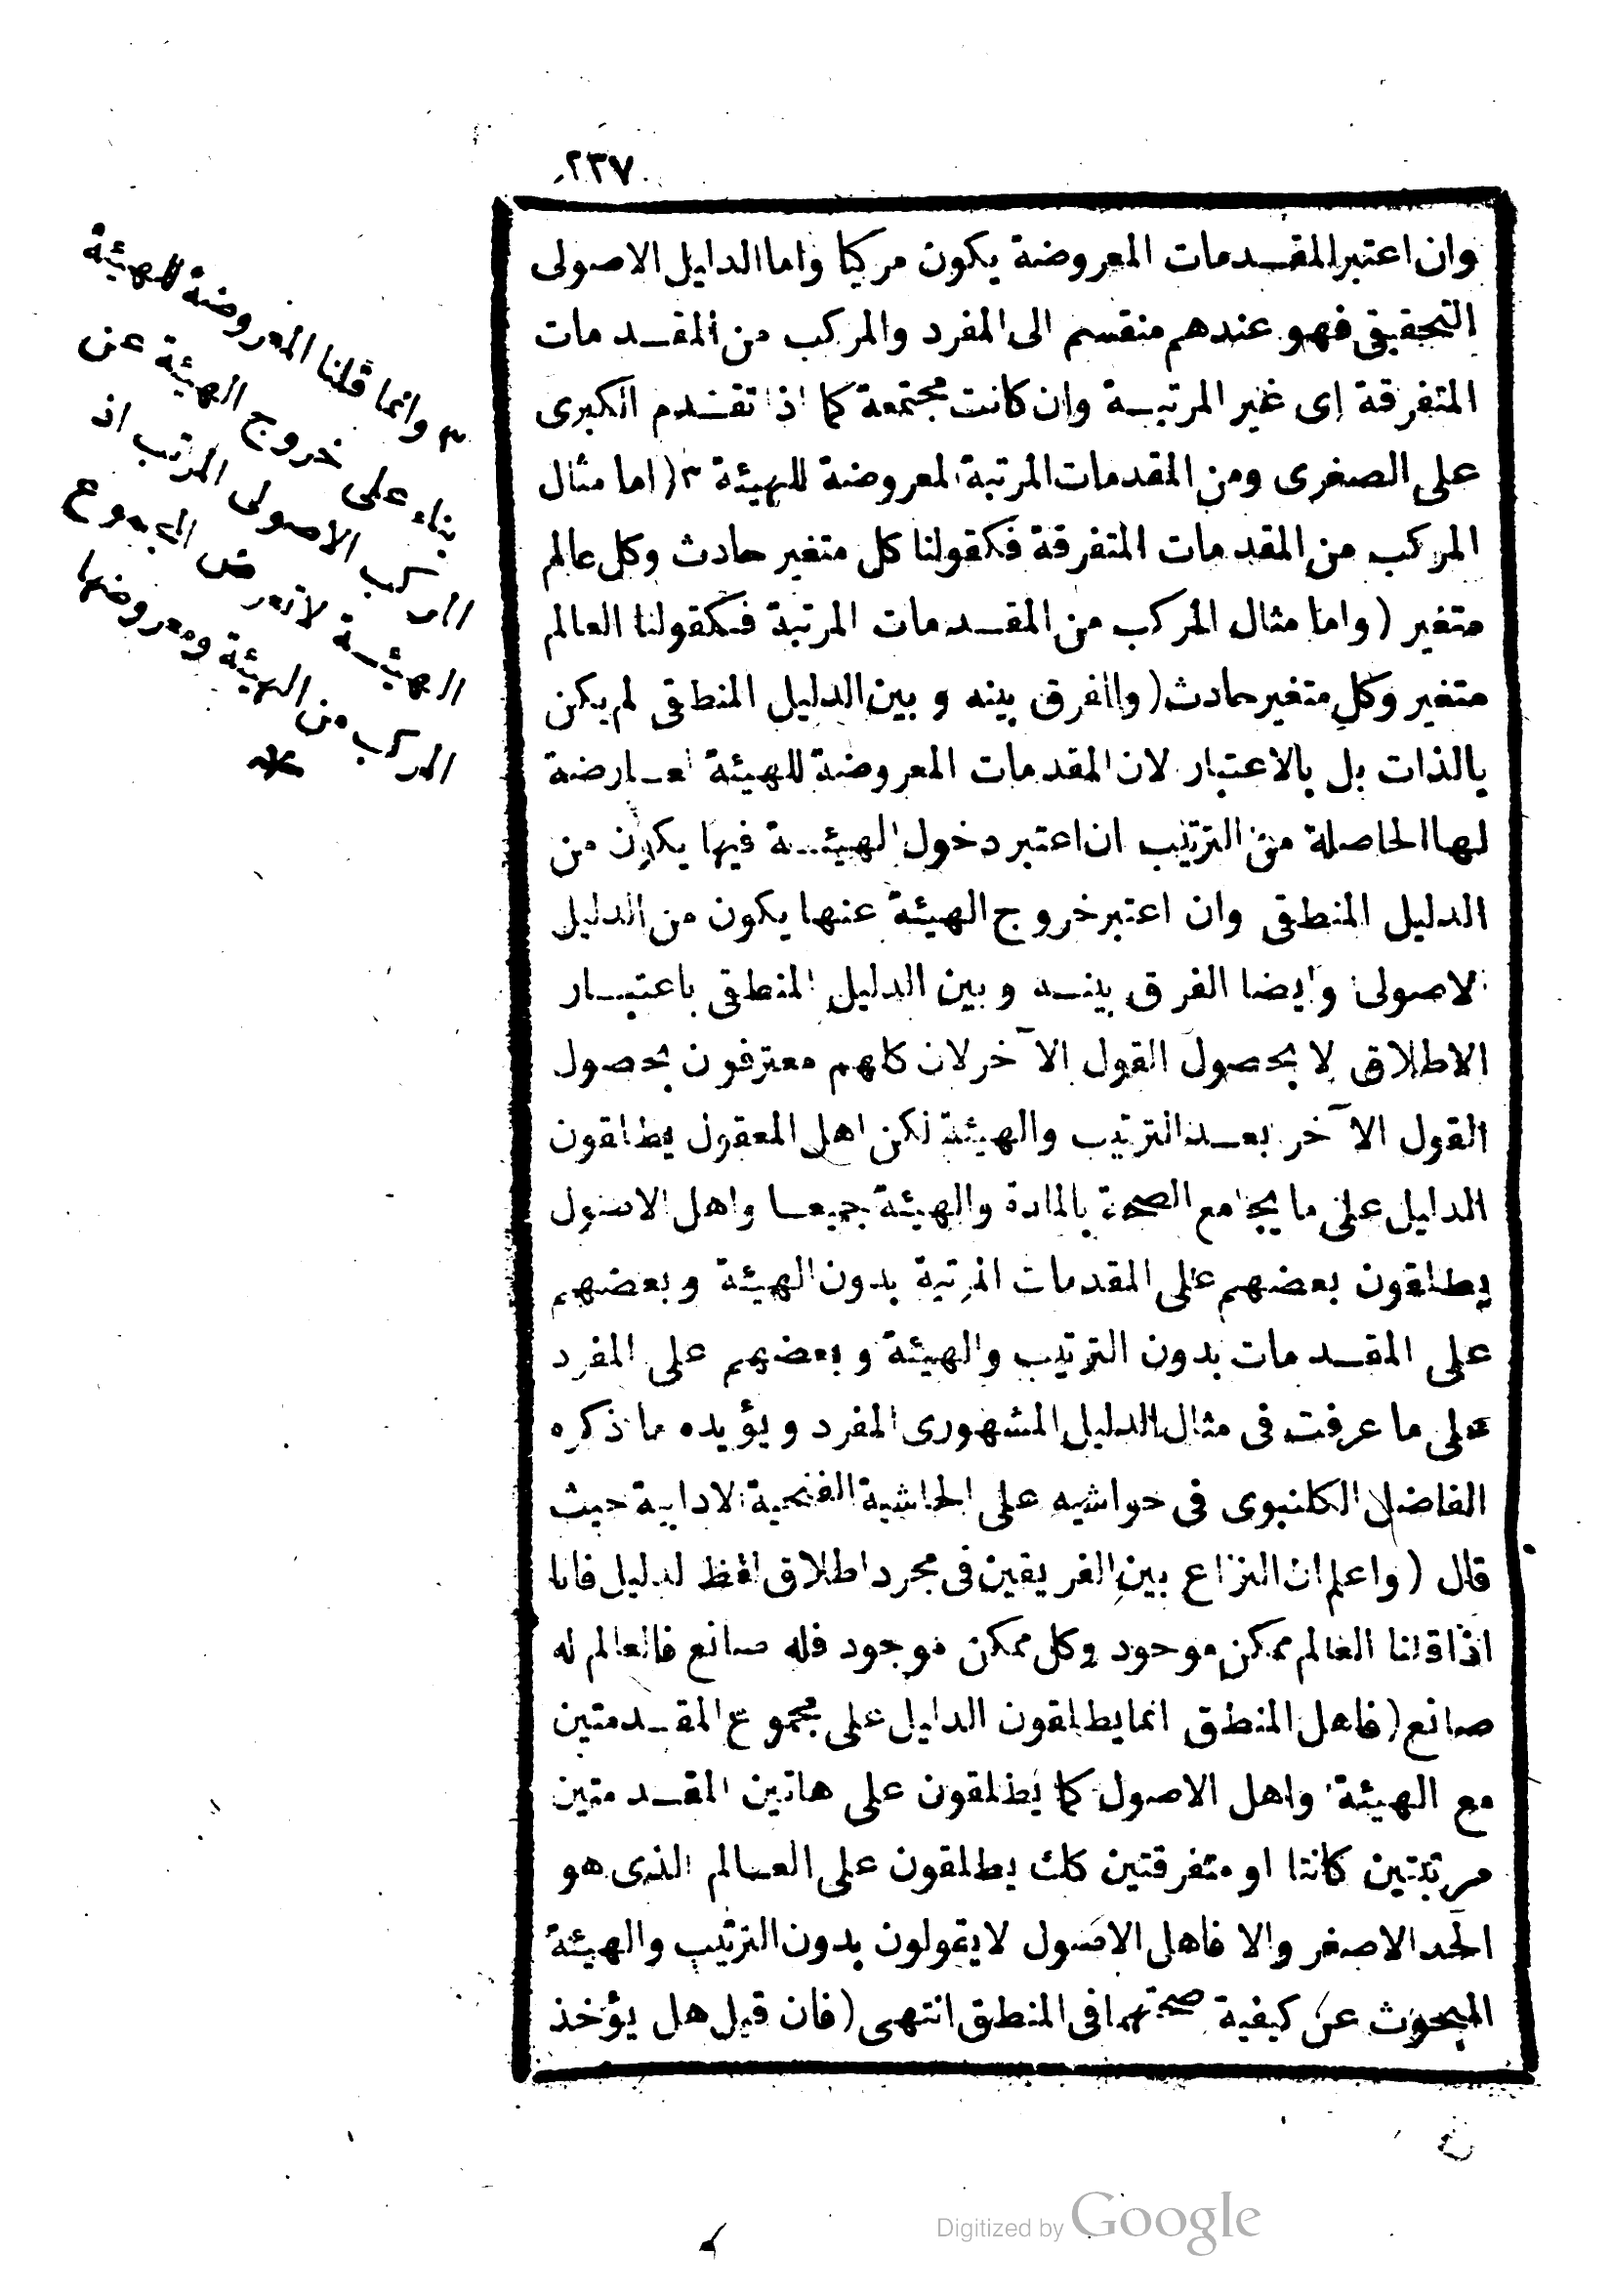 ٢٣٧
وان اعتبر المقدمات المعروضة يكون مركبا واما الدليل الاصولى
التحقيقى فهو عندهم منقسم الى المفرد والمركب من المقدمات
المتفرقة اى غير المرتبة وان كانت مجتمعة كما اذا تقدم الكبرى
على الصغرى ومن المقدمات المرتبة المعروضة للهيئة ٣ (اما مثال
المركب من المقدمات المتفرقة فكقولنا كل متغير حادث وكل عالم
متغير (واما مثال المركب من المقدمات المرتبة فكقولنا العالم
متغير وكل متغير حادث (والفرق بينه وبين الدليل المنطقى لم يكن
بالذات بل بالاعتبار لان المقدمات المعروضة للهيئة العارضة
لها الحاصلة من الترتيب ان اعتبر دخول الهيئة فيها يكون من
الدليل المنطقى وان اعتبر خروج الهيئة عنها يكون من الدليل
الاصولى وايضا الفرق بينه وبين الدليل المنطقى باعتبار
الاطلاق لا بحصول القول الآخر لان كلهم معترفون بحصول
القول الآخر بعد الترتيب والهيئة لكن اهل المعقول يطلقون
الدليل على ما يجامع الصحة بالمادة والهيئة جميعا واهل الاصول
يطلقون بعضهم على المقدمات المرتبة بدون الهيئة وبعضهم
على المقدمات بدون الترتيب والهيئة وبعضهم على المفرد
على ما عرفت فى مثال الدليل المشهورى المفرد ويؤيده ما ذكره
الفاضل الكلنبوى فى حواشيه على الحاشية الفتحية الادابية حيث
قال (واعلم ان النزاع بين الفريقين فى مجرد اطلاق لفظ الدليل فانا
اذا قلنا العالم ممكن موجود وكل ممكن موجود فله صانع فالعالم له
صانع (فاهل المنطق انما يطلقون الدليل على مجموع المقدمتين
مع الهيئة واهل الاصول كما يطلقون على هاتين المقدمتين
مرتبتين كانتا او متفرقتين كك يطلقون على العالم الذى هو
الحد الاصغر والا فاهل الاصول لا يقولون بدون الترتيب والهيئة
المبحوث عن كيفية صحتها فى المنطق انتهى (فان قيل هل يؤخذ
٣ وانما قلنا المعروضة للهيئة
بناء على خروج الهيئة عن
المركب الاصولى المرتب اذ
الهيئة لا تعرض المجموع
المركب من الهيئة ومعروضها
Digitized by Google